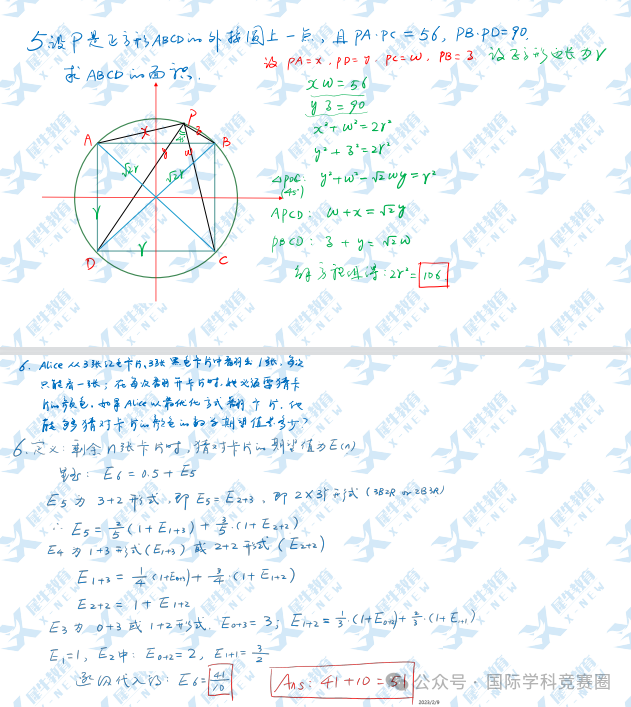 5 设 P 是正方形ABCD的外接圆上一点, 且 PA·PC = 56, PB·PD=90.
求 ABCD的面积.
设 PA=x, PD=y, PC=w, PB=3 设正方形边长为r
xw = 56
y3 = 90
x²+w²=2r²
y²+3²=2r²
△PDC: y²+w²-√2wy=r²
(45°)
APCD: w+x=√2y
PBCD: 3+y=√2w
解方程组得: 2r²= 106
A
P
B
D
C
x
3
y
w
√2r
√2r
r
r
6. Alice从3张红色卡片、3张黑色卡片中翻出1张, 每次
只能看一张; 在每次翻开卡片时, 她必须要猜卡
片的颜色. 如果Alice以最优化方式翻卡片, 她
能够猜对卡片的颜色的期望值是多少?
6. 定义: 剩余n张卡片时, 猜对卡片的期望值为E(n)
E₆ = 0.5 + E₅
E₅ 为 3+2 形式, 即 E₅=E₂₊₃, 即 2×3形式 (3B2R or 2B3R)
∴ E₅ = 2/5 (1+E₁₊₃) + 3/5·(1+E₂₊₂)
E₄ 为 1+3形式(E₁₊₃) 或 2+2形式 (E₂₊₂)
E₁₊₃ = 1/4 (1+E₀₊₃) + 3/4·(1+E₁₊₂)
E₂₊₂ = 1+E₁₊₂
E₃ 为 0+3 或 1+2形式. E₀₊₃=3; E₁₊₂=1/3·(1+E₀₊₂)+2/3·(1+E₁₊₁)
E₁=1, E₂中: E₀₊₂=2, E₁₊₁=3/2
逐次代入得: E₆= 41/10
Ans: 41+10=51
公众号 · 国际学科竞赛圈
2023/2/9
犀牛教育
X-NEW